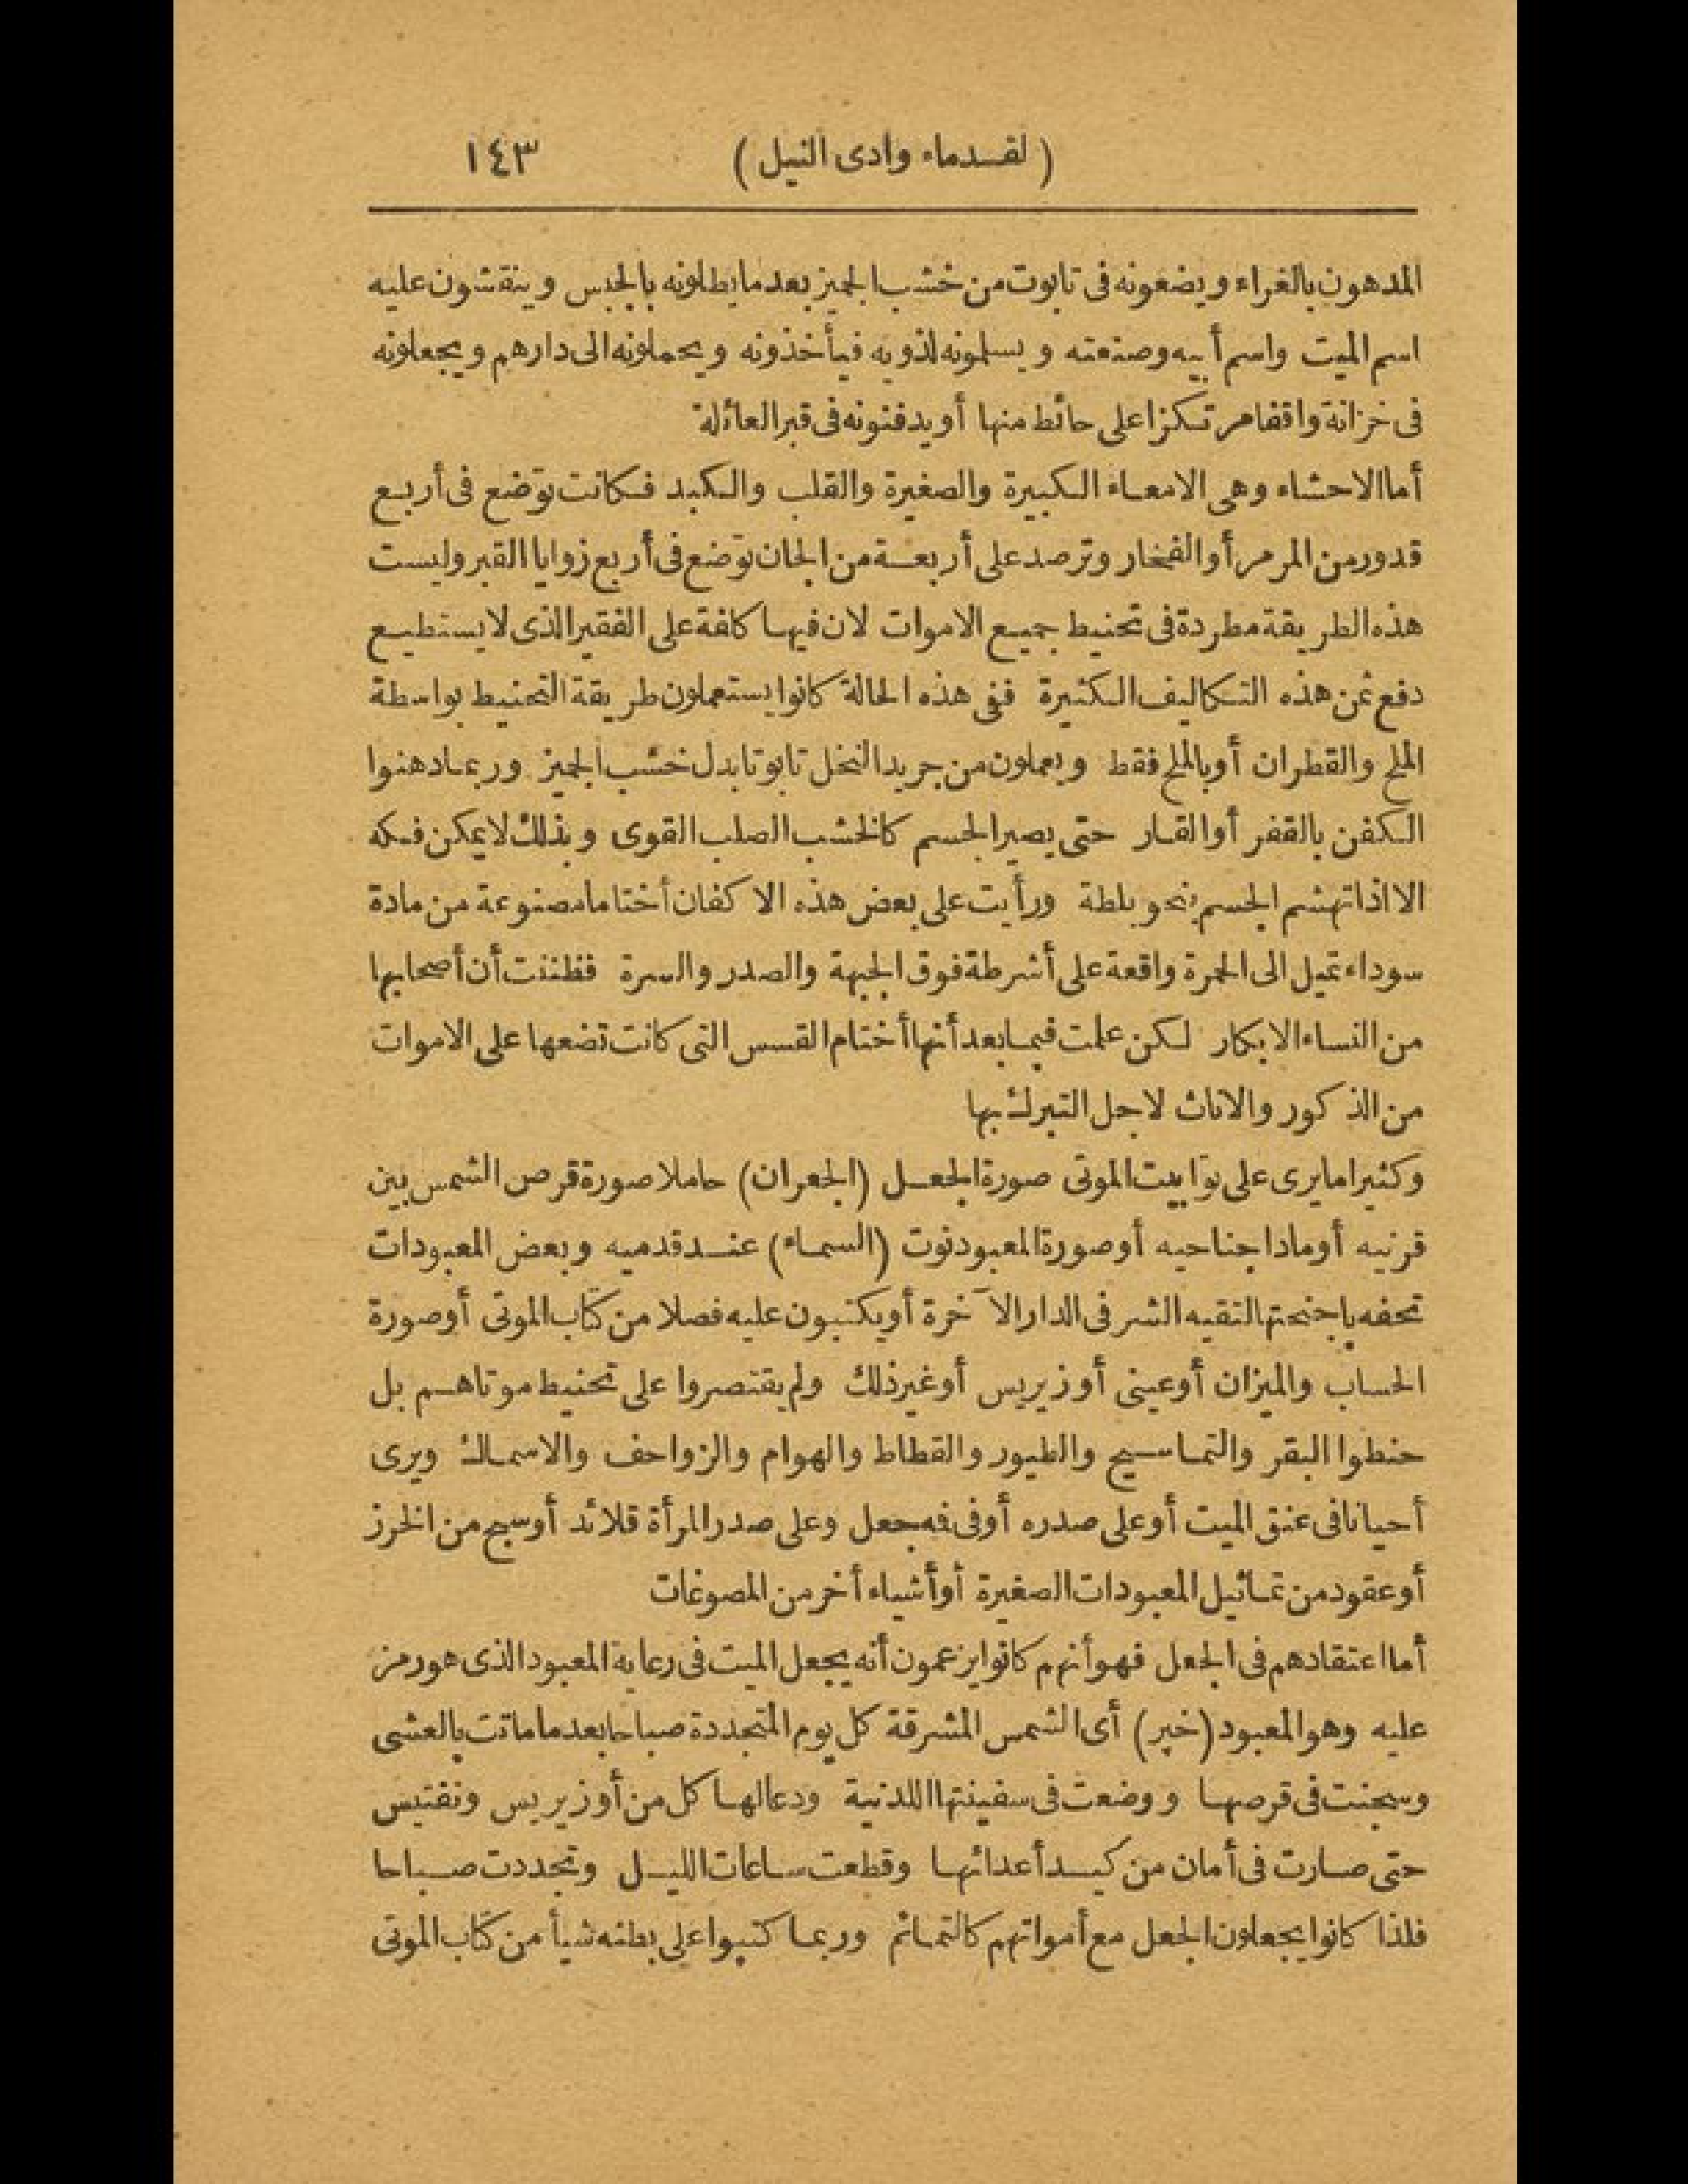 (لقدماء وادى النيل) ١٤٣
المدهون بالغراء ويضعونه فى تابوت من خشب الجميز بعد ما يطلونه بالجبس وينقشون عليه
اسم الميت واسم أبيه وصنعته ويسلمونه لذويه فيأخذونه ويحملونه الى دارهم ويجعلونه
فى خزانة واقفا مرتكزا على حائط منها أو يدفنونه فى قبر العائلة
أما الاحشاء وهى الامعاء الكبيرة والصغيرة والقلب والكبد فكانت توضع فى أربع
قدور من المرمر أو الفخار وترصد على أربعة من الجان توضع فى أربع زوايا القبر وليست
هذه الطريقة مطردة فى تحنيط جميع الاموات لان فيها كلفة على الفقير الذى لا يستطيع
دفع ثمن هذه التكاليف الكثيرة ففى هذه الحالة كانوا يستعملون طريقة التحنيط بواسطة
الملح والقطران أو بالملح فقط ويعملون من جريد النخل تابوتا بدل خشب الجميز وربما دهنوا
الكفن بالقفر أو القار حتى يصير الجسم كالخشب الصلب القوى وبذلك لا يمكن فكه
الا اذا تهشم الجسم بنحو بلطة ورأيت على بعض هذه الاكفان أختاما مصنوعة من مادة
سوداء تميل الى الحمرة واقعة على أشرطة فوق الجبهة والصدر والسرة فظننت أن أصحابها
من النساء الابكار لكن علمت فيما بعد أنها أختام القسس التى كانت تضعها على الاموات
من الذكور والاناث لاجل التبرك بها
وكثيرا ما يرى على توابيت الموتى صورة الجعل (الجعران) حاملا صورة قرص الشمس بين
قرنيه أو مادا جناحيه أو صورة المعبود نوت (السماء) عند قدميه وبعض المعبودات
تحفه باجنحتها لتقيه الشر فى الدار الآخرة أو يكتبون عليه فصلا من كتاب الموتى أو صورة
الحساب والميزان أو عينى أوزيريس أو غير ذلك ولم يقتصروا على تحنيط موتاهم بل
حنطوا البقر والتماسيح والطيور والقطاط والهوام والزواحف والاسماك ويرى
أحيانا فى عنق الميت أو على صدره أو فى فه جعل وعلى صدر المرأة قلائد أو سبح من الخرز
أو عقود من تماثيل المعبودات الصغيرة أو أشياء أخر من المصوغات
أما اعتقادهم فى الجعل فهو أنهم كانوا يزعمون أنه يجعل الميت فى رعاية المعبود الذى هو رمز
عليه وهو المعبود (خپر) أى الشمس المشرقة كل يوم المتجددة صباحا بعد ما ماتت بالعشى
وسجنت فى قرصها ووضعت فى سفينتها اللدنية ودعا لها كل من أوزيريس ونفتيس
حتى صارت فى أمان من كيد أعدائها وقطعت ساعات الليل وتجددت صباحا
فلذا كانوا يجعلون الجعل مع أمواتهم كالتمائم وربما كتبوا على بطنه شيأ من كتاب الموتى